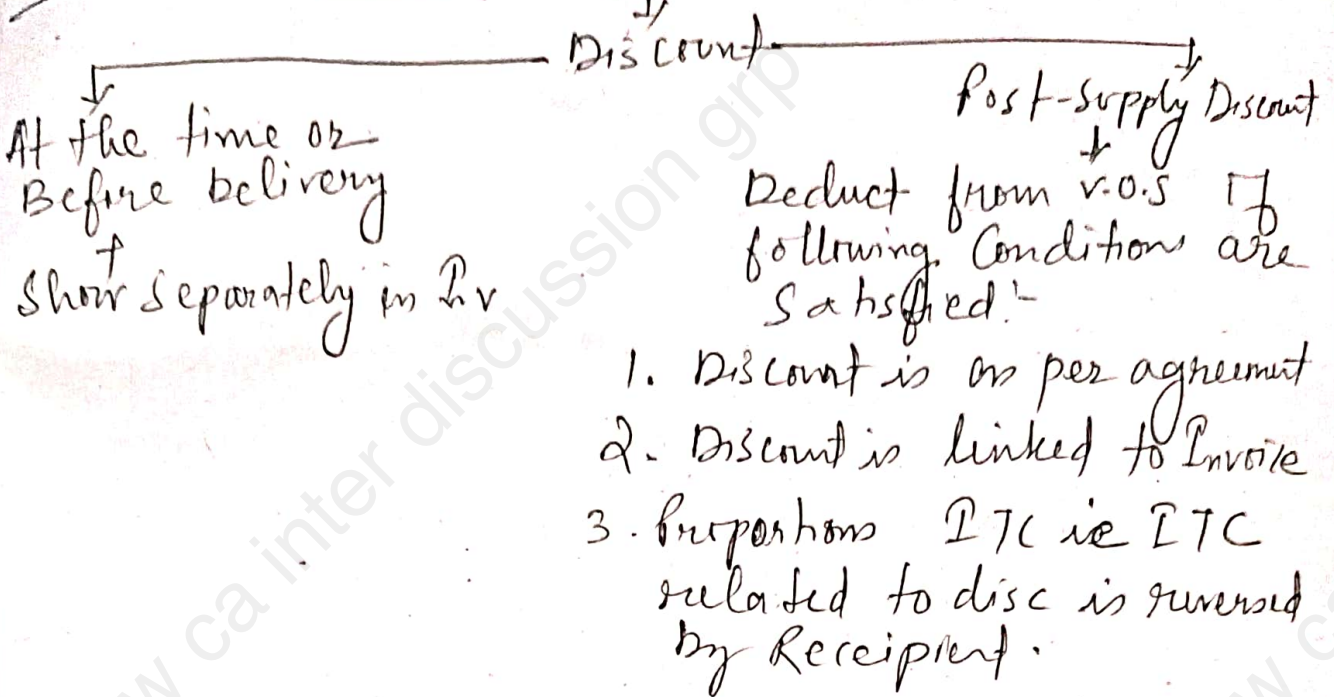 Discount
At the time or
Before Delivery
Show Separately in Inv
Post-Supply Discount
Deduct from V.O.S If
following Conditions are
Satisfied:-
1. Discount is as per agreement
2. Discount is linked to Invoice
3. Proportions ITC ie ITC
related to disc is reversed
by Receipient.
ca inter discussion grp